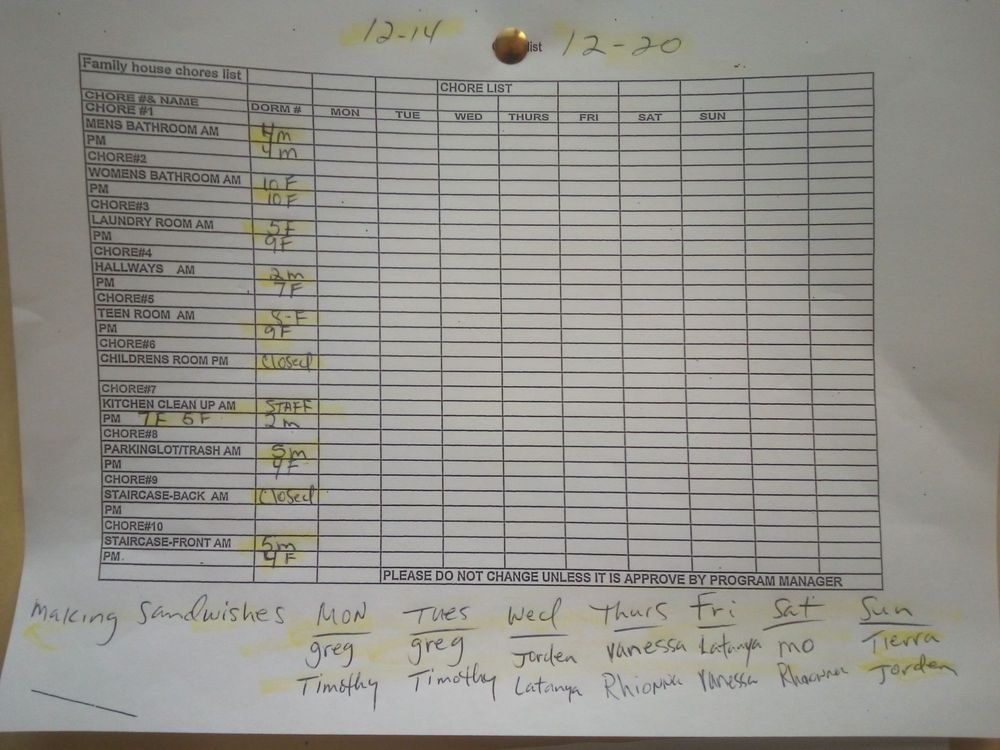 12-14 list 12-20
Family house chores list
CHORE LIST
CHORE #& NAME
CHORE #1 DORM # MON TUE WED THURS FRI SAT SUN
MENS BATHROOM AM 4m
PM 4m
CHORE#2
WOMENS BATHROOM AM 10 F
PM 10 F
CHORE#3
LAUNDRY ROOM AM 5F
PM 9F
CHORE#4
HALLWAYS AM 2m
PM 7F
CHORE#5
TEEN ROOM AM 8-F
PM 9F
CHORE#6
CHILDRENS ROOM PM Closed
CHORE#7
KITCHEN CLEAN UP AM STAFF
PM 7F 5F 2m
CHORE#8
PARKINGLOT/TRASH AM 5m
PM 9F
CHORE#9
STAIRCASE-BACK AM Closed
PM
CHORE#10
STAIRCASE-FRONT AM 5m
PM. 4F
PLEASE DO NOT CHANGE UNLESS IT IS APPROVE BY PROGRAM MANAGER
Making Sandwishes MON TUES Wed Thurs Fri Sat Sun
greg greg Jorden Vanessa Latanya mo Tierra
Timothy Timothy Latanya Rhionna Vanessa Jorden